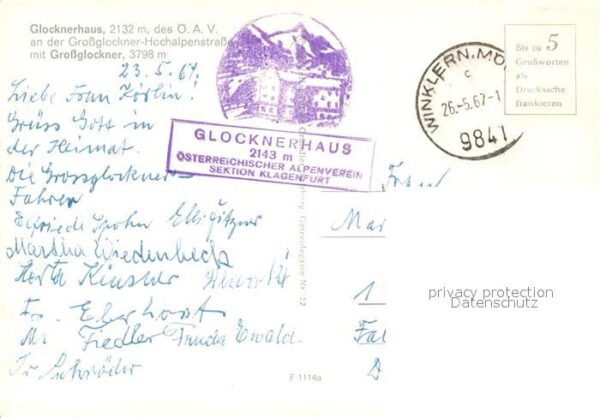 Glocknerhaus, 2132 m, des Ö. A. V.
an der Großglockner-Hochalpenstraße
mit Großglockner, 3798 m
23. 5. 67.
Liebe Frau
Grüss Gott in
der Heimat.
Die Grossglockner
Fahrer
Elfriede Spohn
Martha Wiedenbeck
Herta
Fr. Eberhorst
Fiedler Truda Ewald
Fr. Schröder
GLOCKNERHAUS
2143 m
ÖSTERREICHISCHER ALPENVEREIN
SEKTION KLAGENFURT
WINKLERN, MÖ
c
26.-5.67-1
9841
Bis zu 5
Grußworten
als
Drucksache
frankieren
Nr. 22
Frau
Ma
1
D
privacy protection
Datenschutz
F 1114a